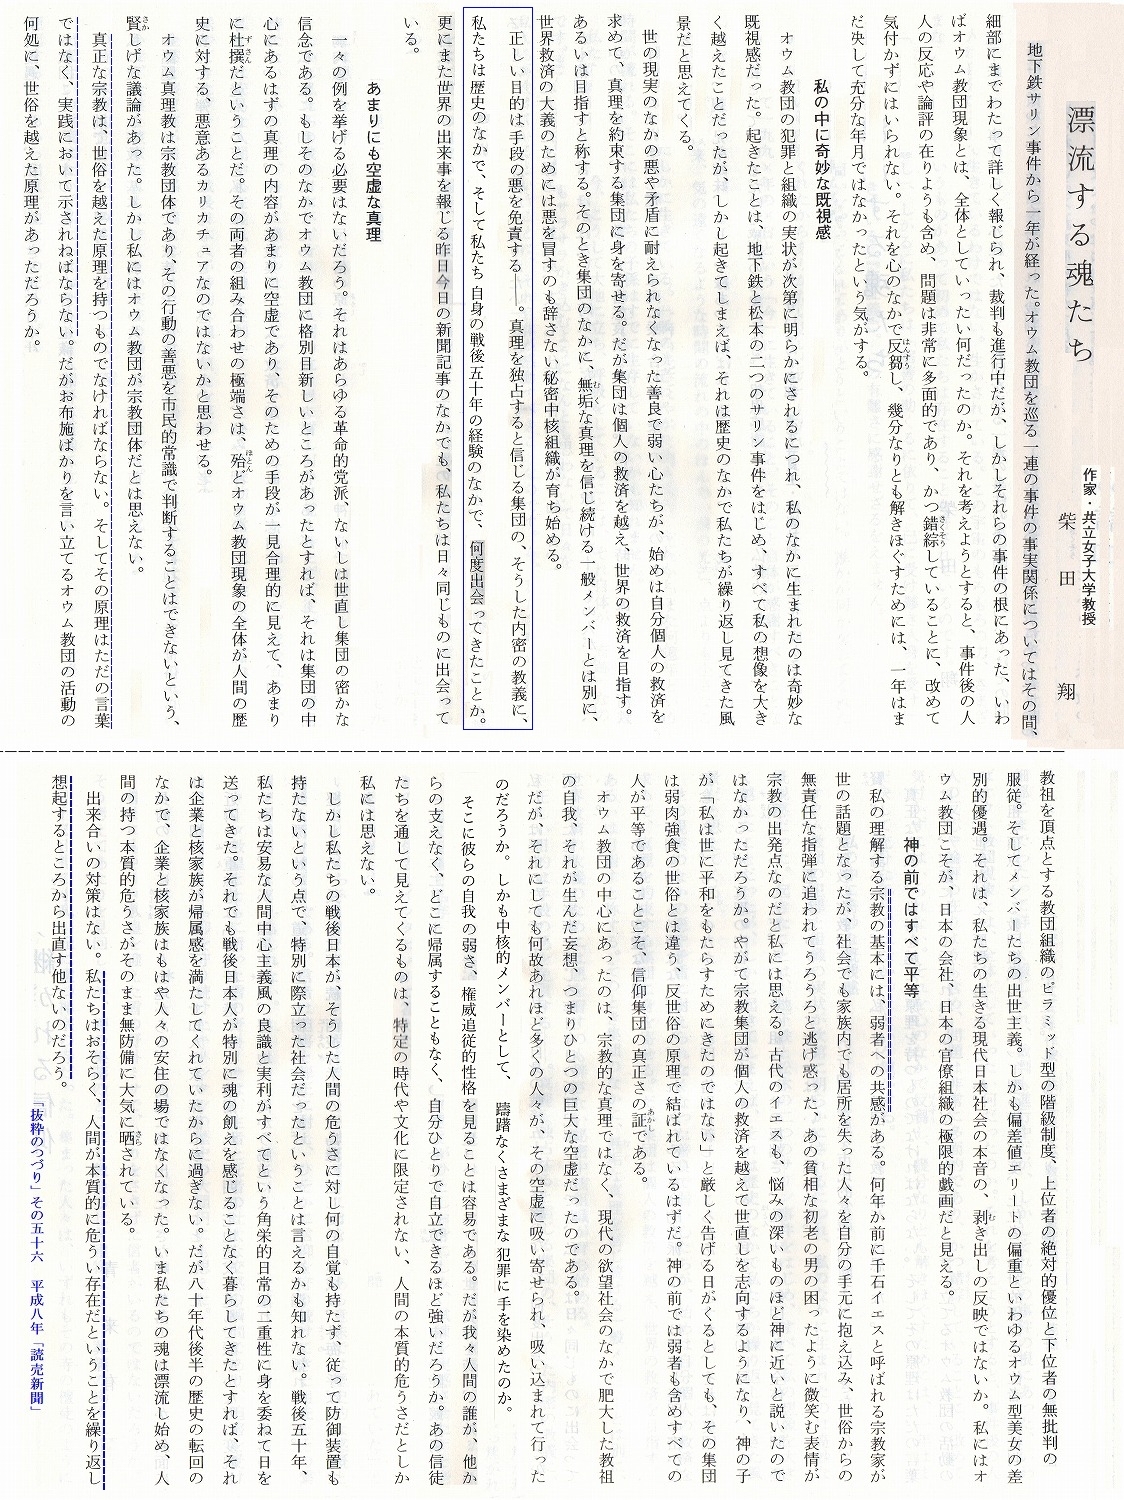 漂流する魂たち
作家・共立女子大学教授
柴田　翔
地下鉄サリン事件から一年が経った。オウム教団を巡る一連の事件の事実関係についてはその間、
細部にまでわたって詳しく報じられ、裁判も進行中だが、しかしそれらの事件の根にあった、いわ
ばオウム教団現象とは、全体としていったい何だったのか。それを考えようとすると、事件後の人
人の反応や論評の在りようも含め、問題は非常に多面的であり、かつ錯綜していることに、改めて
気付かずにはいられない。それを心のなかで反芻し、幾分なりとも解きほぐすためには、一年はま
だ決して充分な年月ではなかったという気がする。
私の中に奇妙な既視感
オウム教団の犯罪と組織の実状が次第に明らかにされるにつれ、私のなかに生まれたのは奇妙な
既視感だった。起きたことは、地下鉄と松本の二つのサリン事件をはじめ、すべて私の想像を大き
く越えたことだったが、しかし起きてしまえば、それは歴史のなかで私たちが繰り返し見てきた風
景だと思えてくる。
世の現実のなかの悪や矛盾に耐えられなくなった善良で弱い心たちが、始めは自分個人の救済を
求めて、真理を約束する集団に身を寄せる。だが集団は個人の救済を越え、世界の救済を目指す。
あるいは目指すと称する。そのとき集団のなかに、無垢な真理を信じ続ける一般メンバーとは別に、
世界救済の大義のためには悪を冒すのも辞さない秘密中核組織が育ち始める。
正しい目的は手段の悪を免責する――。真理を独占すると信じる集団の、そうした内密の教義に、
私たちは歴史のなかで、そして私たち自身の戦後五十年の経験のなかで、何度出会ってきたことか。
更にまた世界の出来事を報じる昨日今日の新聞記事のなかでも、私たちは日々同じものに出会って
いる。
あまりにも空虚な真理
一々の例を挙げる必要はないだろう。それはあらゆる革命的党派、ないしは世直し集団の密かな
信念である。もしそのなかでオウム教団に格別目新しいところがあったとすれば、それは集団の中
心にあるはずの真理の内容があまりに空虚であり、そのための手段が一見合理的に見えて、あまり
に杜撰だということだ。その両者の組み合わせの極端さは、殆どオウム教団現象の全体が人間の歴
史に対する、悪意あるカリカチュアなのではないかと思わせる。
オウム真理教は宗教団体であり、その行動の善悪を市民的常識で判断することはできないという、
賢しげな議論があった。しかし私にはオウム教団が宗教団体だとは思えない。
真正な宗教は、世俗を越えた原理を持つものでなければならない。そしてその原理はただの言葉
ではなく、実践において示されねばならない。だがお布施ばかりを言い立てるオウム教団の活動の
何処に、世俗を越えた原理があっただろうか。
教祖を頂点とする教団組織のピラミッド型の階級制度、上位者の絶対的優位と下位者の無批判の
服従。そしてメンバーたちの出世主義。しかも偏差値エリートの偏重といわゆるオウム型美女の差
別的優遇。それは、私たちの生きる現代日本社会の本音の、剥き出しの反映ではないか。私にはオ
ウム教団こそが、日本の会社、日本の官僚組織の極限的戯画だと見える。
神の前ではすべて平等
私の理解する宗教の基本には、弱者への共感がある。何年か前に千石イエスと呼ばれる宗教家が
世の話題となったが、社会でも家族内でも居所を失った人々を自分の手元に抱え込み、世俗からの
無責任な指弾に追われてうろうろと逃げ惑った、あの貧相な初老の男の困ったように微笑む表情が
宗教の出発点なのだと私には思える。古代のイエスも、悩みの深いものほど神に近いと説いたので
はなかっただろうか。やがて宗教集団が個人の救済を越えて世直しを志向するようになり、神の子
が「私は世に平和をもたらすためにきたのではない」と厳しく告げる日がくるとしても、その集団
は弱肉強食の世俗とは違う、反世俗の原理で結ばれているはずだ。神の前では弱者も含めすべての
人が平等であることこそ、信仰集団の真正さの証である。
オウム教団の中心にあったのは、宗教的な真理ではなく、現代の欲望社会のなかで肥大した教祖
の自我、それが生んだ妄想、つまりひとつの巨大な空虚だったのである。
だが、それにしても何故あれほど多くの人々が、その空虚に吸い寄せられ、吸い込まれて行った
のだろうか。しかも中核的メンバーとして、躊躇なくさまざまな犯罪に手を染めたのか。
そこに彼らの自我の弱さ、権威追従的性格を見ることは容易である。だが我々人間の誰が、他か
らの支えなく、どこに帰属することもなく、自分ひとりで自立できるほど強いだろうか。あの信徒
たちを通して見えてくるものは、特定の時代や文化に限定されない、人間の本質的危うさだとしか
私には思えない。
しかし私たちの戦後日本が、そうした人間の危うさに対し何の自覚も持たず、従って防御装置も
持たないという点で、特別に際立った社会だったということは言えるかも知れない。戦後五十年、
私たちは安易な人間中心主義風の良識と実利がすべてという角栄的日常の二重性に身を委ねて日を
送ってきた。それでも戦後日本人が特別に魂の飢えを感じることなく暮らしてきたとすれば、それ
は企業と核家族が帰属感を満たしてくれていたからに過ぎない。だが八十年代後半の歴史の転回の
なかで、企業と核家族はもはや人々の安住の場ではなくなった。いま私たちの魂は漂流し始め、人
間の持つ本質的危うさがそのまま無防備に大気に晒されている。
出来合いの対策はない。私たちはおそらく、人間が本質的に危うい存在だということを繰り返し
想起するところから出直す他ないのだろう。
「抜粋のつづり」その五十六　平成八年「読売新聞」